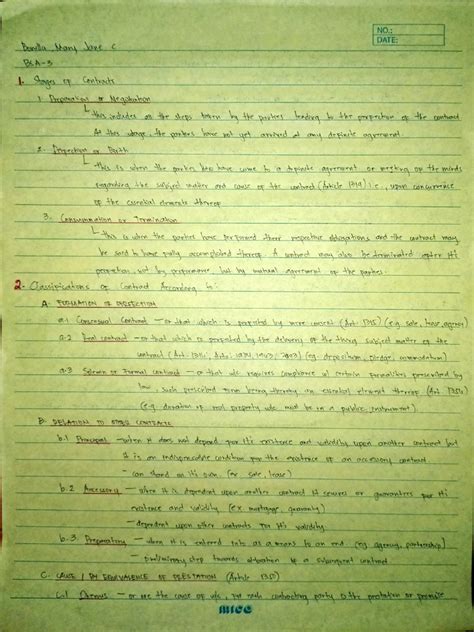 NO.:
DATE:
Bonilla, Mary Jane C
BSA-3
1. Stages of Contracts
1. Preparation or Negotiation
this includes all the steps taken by the parties leading to the perfection of the contract.
At this stage, the parties have not yet arrived at any definite agreement.
2. Perfection or Birth
this is when the parties have come to a definite agreement or meeting of the minds
regarding the subject matter and cause of the contract (Article 1319) i.e., upon concurrence
of the essential elements thereof
3. Consummation or Termination
this is when the parties have performed their respective obligations and the contract may
be said to have fully accomplished thereof. A contract may also be terminated after its
perfection, not by performance, but by mutual agreement of the parties.
2. Classifications of Contract According to:
A. FORMATION OR PERFECTION
a.1 Consensual Contract - or that which is perfected by mere consent (Art. 1315) (e.g. sale, lease, agency)
a.2 Real contract - or that which is perfected by the delivery of the thing subject matter of the
contract (Art. 1316; (eg. deposition, pledge, commodatum)
a.3 Solemn or Formal contract - or that w/c requires compliance w/ certain formalities prescribed by
law, such prescribed form being thereby an essential element thereof (Art. 1356)
(e.g. donation of real property w/c must be in a public instrument)
B. RELATION TO OTHER CONTRACTS
b.1 Principal - when it does not depend for its existence and validity upon another contract but
is an indispensable condition for the existence of an accessory contract
- can stand on its own. (ex sale, lease)
b.2 Accessory - when it is dependent upon another contract it secures or guarantees for its
existence and validity (ex mortgage, guaranty)
- dependent upon other contracts for its validity.
b.3. Preparatory - when it is entered into as a means to an end (eg. agency, partnership)
- preliminary step towards of a subsequent contract.
C. CAUSE / BY EQUIVALENCE OF PRESTATION (Article 1350)
c.1 Onerous - or are the cause of w/c, for each contracting party is the prestation or promise